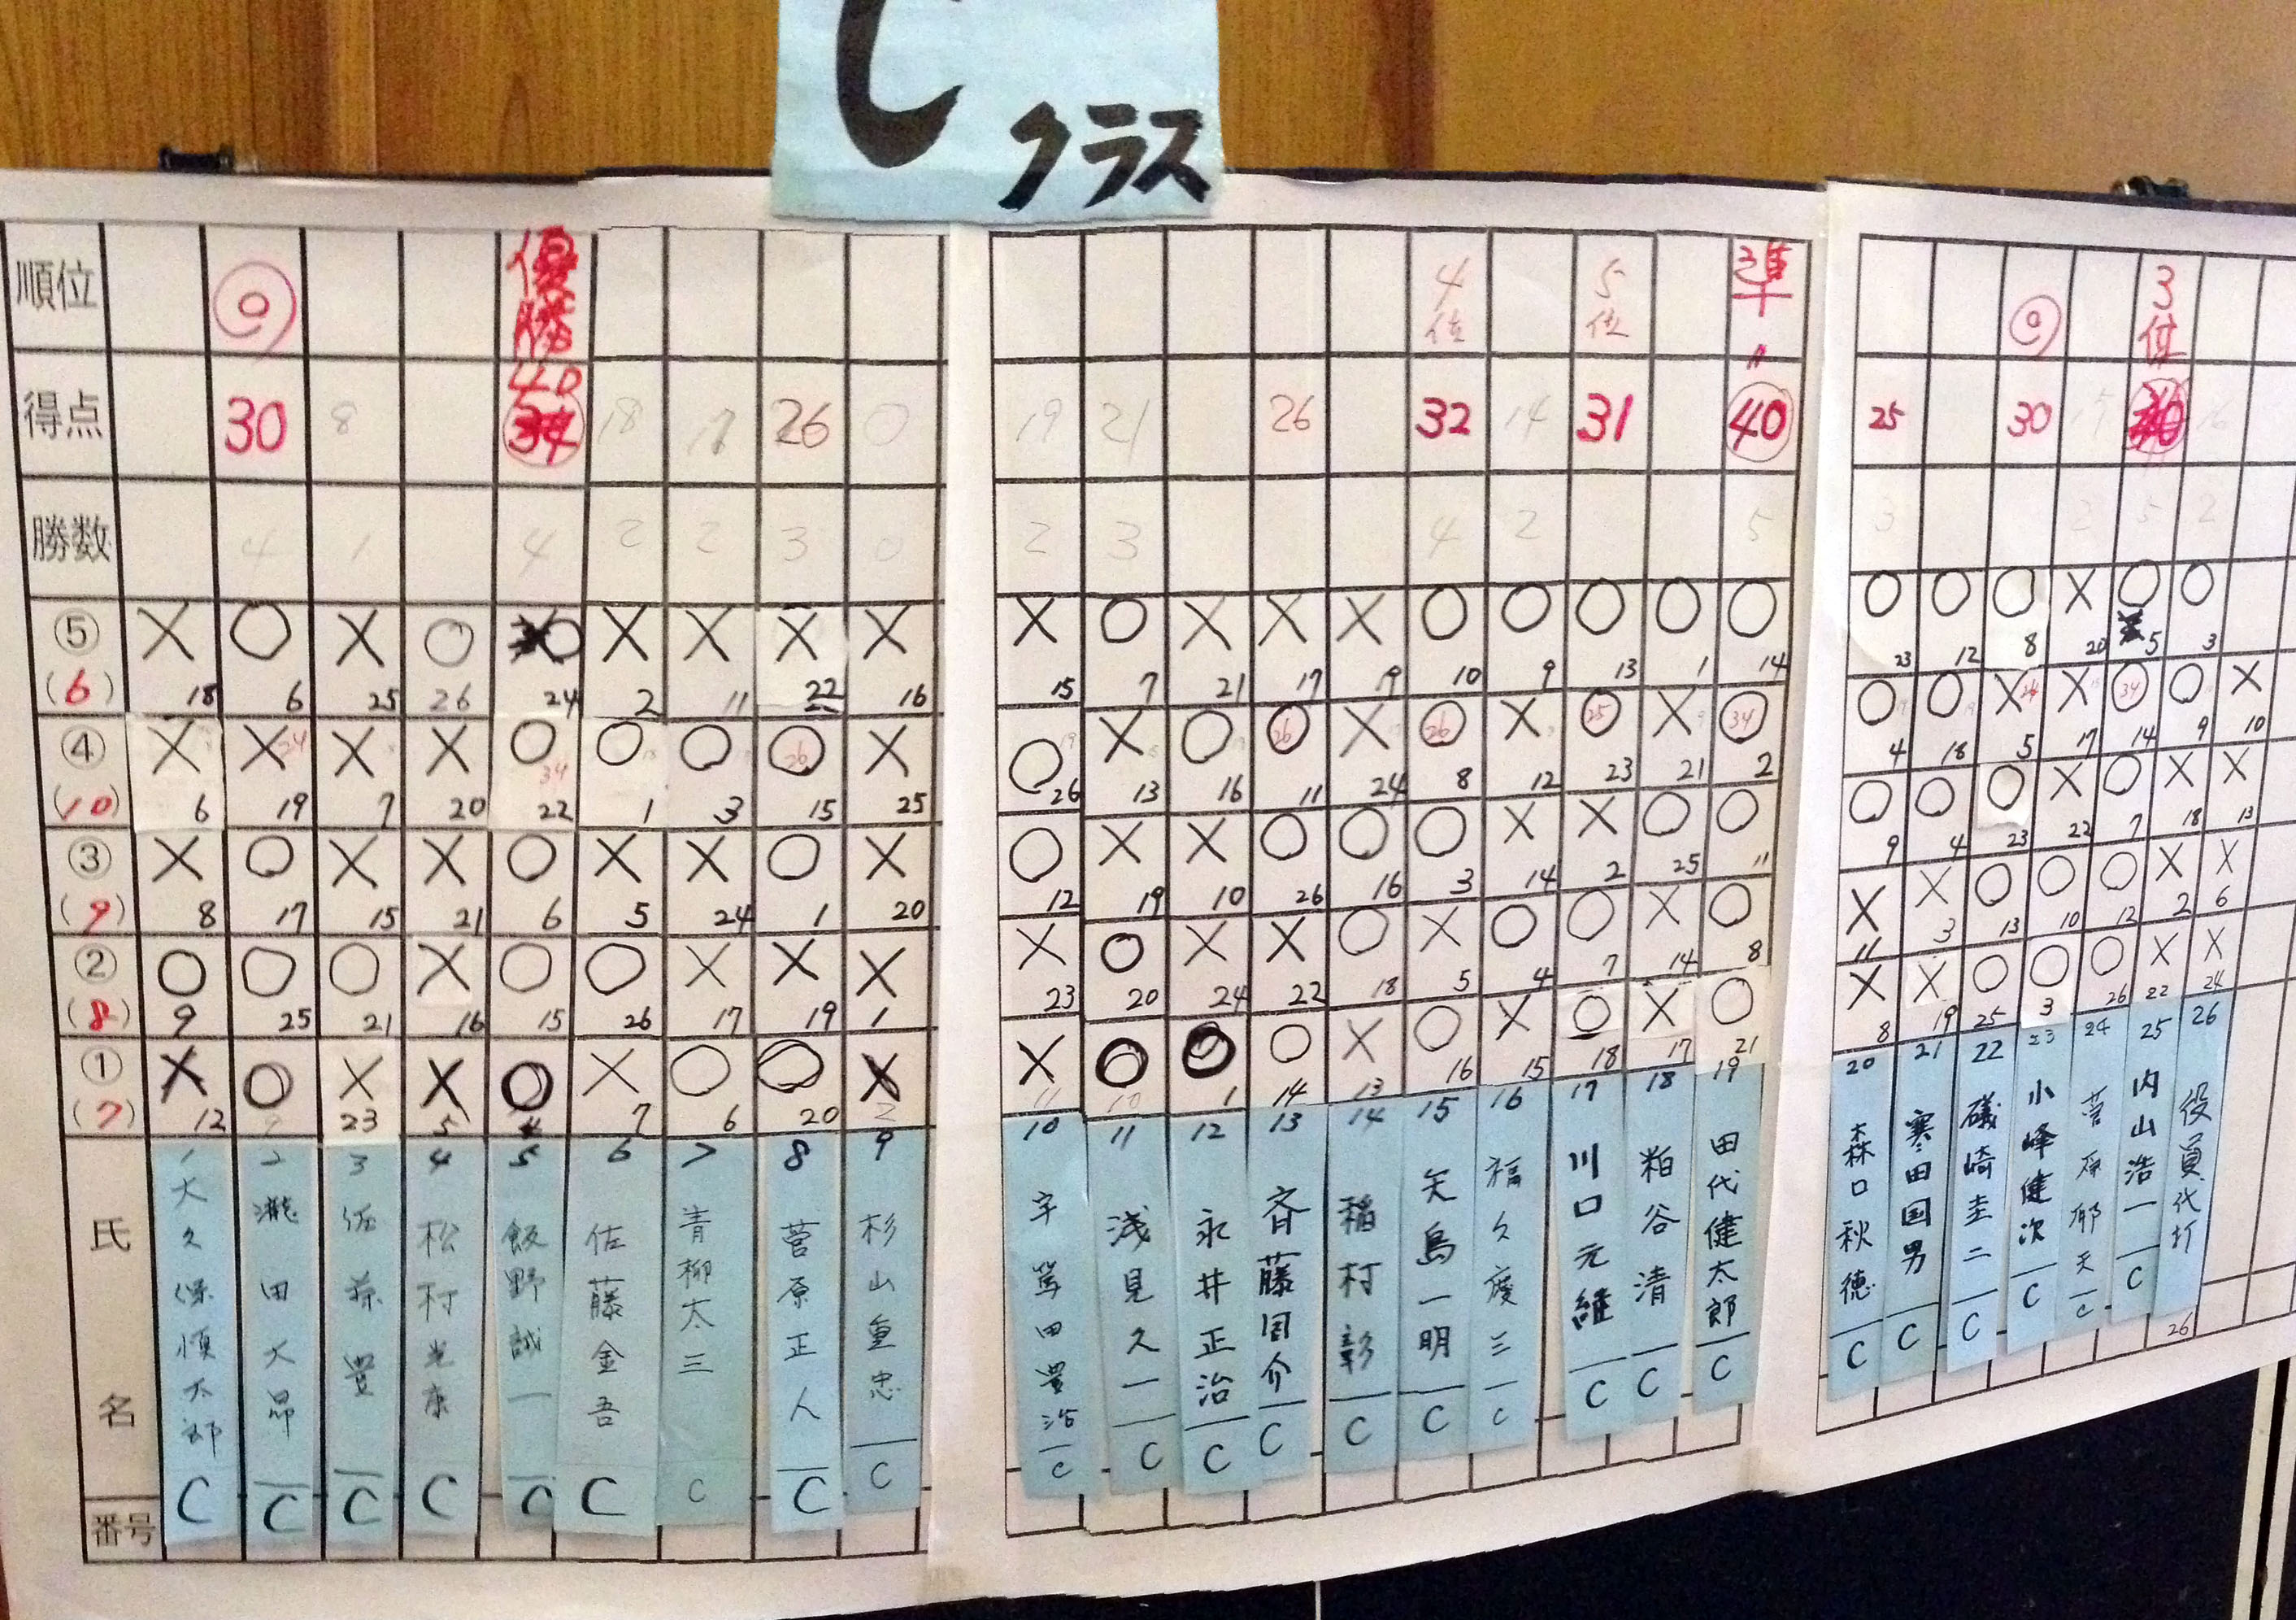 C
クラス
順位 ⑨ 優勝 4位 5位 準〃 ⑨ 3位
得点 30 8 40 34 18 17 26 0 19 21 26 32 14 31 40 25 30 16
勝数 4 1 4 2 2 3 0 2 3 4 2 5 3 2 5 2
⑤ × ○ × ○ ○ × × × × × ○ × × × ○ ○ ○ ○ ○ ○ ○ ○ × ○ ○
(6) 18 6 25 26 24 2 11 22 16 15 7 21 17 19 10 9 13 1 14 23 12 8 20 5 3
④ × × × × ○ ○ ○ ○ × ○ × ○ ○ × ○ × ○ × ○ ○ ○ × × ○ ○ ×
(10) 6 19 7 20 22 1 3 15 25 26 13 16 11 24 8 12 23 21 2 4 18 5 17 14 9 10
③ × ○ × × ○ × × ○ × ○ × × ○ ○ ○ × × ○ ○ ○ ○ ○ × ○ × ×
(9) 8 17 15 21 6 5 24 1 20 12 19 10 26 16 3 14 2 25 11 9 4 23 22 7 18 13
② ○ ○ ○ × ○ ○ × × × × ○ × × ○ × ○ ○ × ○ × × ○ ○ ○ × ×
(8) 9 25 21 16 15 26 17 19 1 23 20 24 22 18 5 4 7 14 8 11 3 13 10 12 2 6
① × ○ × × ○ × ○ ○ × × ○ ○ ○ × ○ × ○ × ○ × × ○ ○ ○ × ×
(7) 12 23 5 4 7 6 20 2 11 10 1 14 13 16 15 18 17 21 8 19 25 3 26 22 24
氏名
1 大久保順太郎 C
2 瀧田大昂 C
3 佐藤豊 C
4 松村光康 C
5 飯野誠一 C
6 佐藤金吾 C
7 青柳太三 C
8 菅原正人 C
9 杉山重忠 C
10 宇篤田豊浩 C
11 浅見久一 C
12 永井正治 C
13 斉藤固介 C
14 稲村彰 C
15 矢島一明 C
16 福久慶三 C
17 川口元継 C
18 粕谷清 C
19 田代健太郎 C
20 森口秋徳 C
21 寒田国男 C
22 礒崎圭二 C
23 小峰健次 C
24 菅原耶天 C
25 内山浩一 C
26 役員代打
26
番号